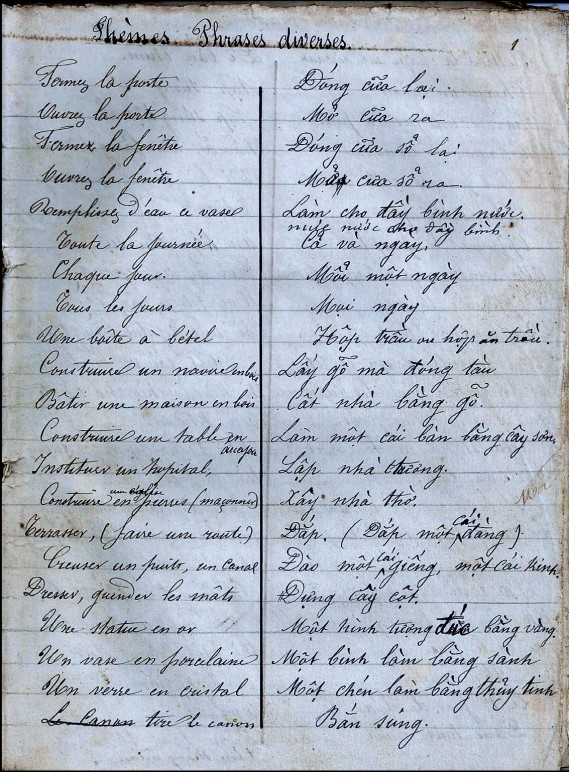 Thèmes Phrases diverses.
1
Fermez la porte Đóng cữa lại.
Ouvrez la porte Mở cữa ra
Fermez la fenêtre Đóng cữa sổ lại
Ouvrez la fenêtre Mở cữa sổ ra.
Remplissez d'eau ce vase Làm cho đầy bình nước.
nước cho đầy bình.
Toute la journée Cả và ngày,
Chaque jour. Mỗi một ngày
Tous les jours Mọi ngày
Une boîte à bétel Hộp trầu ou hộp ăn trầu.
Construire un navire en bois Lấy gỗ mà đóng tàu
Bâtir une maison en bois Cất nhà bằng gỗ.
Construire une table en acajou Làm một cái bàn bằng cây sơn,
Instituer un hopital, Lập nhà thương.
Construire une église en pierres (maçonner) Xây nhà thờ.
Terrasser, (faire une route) Đắp. (Đắp một cái đàng)
Creuser un puits, un canal Đào một cái giếng, một cái kinh.
Dresser, guinder les mâts Dựng cây cột.
Une statue en or Một hình tượng đúc bằng vàng.
Un vase en porcelaine Một bình làm bằng sành
Un verre en cristal Một chén làm bằng thủy tinh
Le Canon tire le canon Bắn súng.